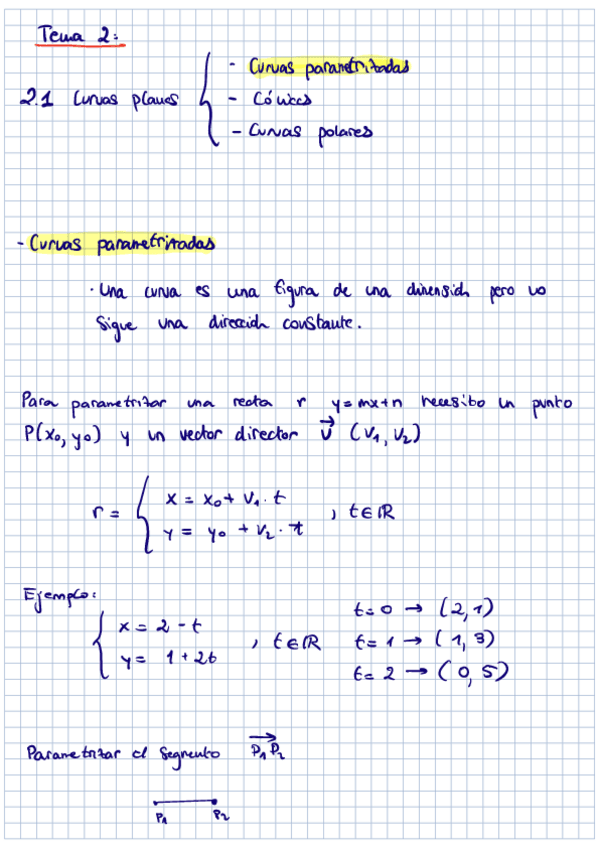 Tema 2:
- Curvas parametrizadas
2.1 Curvas planas { - Cónicas
- Curvas polares
- Curvas parametrizadas
· Una curva es una figura de una dimensión pero no
sigue una dirección constante.
Para parametrizar una recta r y=mx+n necesito un punto
P(x₀,y₀) y un vector director v⃗ (v₁,v₂)
r = { x = x₀ + v₁·t
y = y₀ + v₂·t , t∈ℝ
Ejemplo:
{ x = 2 - t
y = 1 + 2t , t∈ℝ
t=0 → (2,1)
t=1 → (1,3)
t=2 → (0,5)
Parametrizar el segmento P₁P₂
P₁ P₂